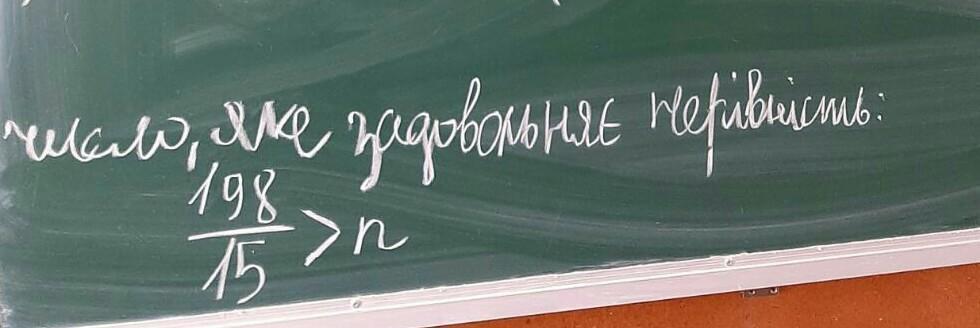 число, яке задовольняє нерівність:
198/15 > n